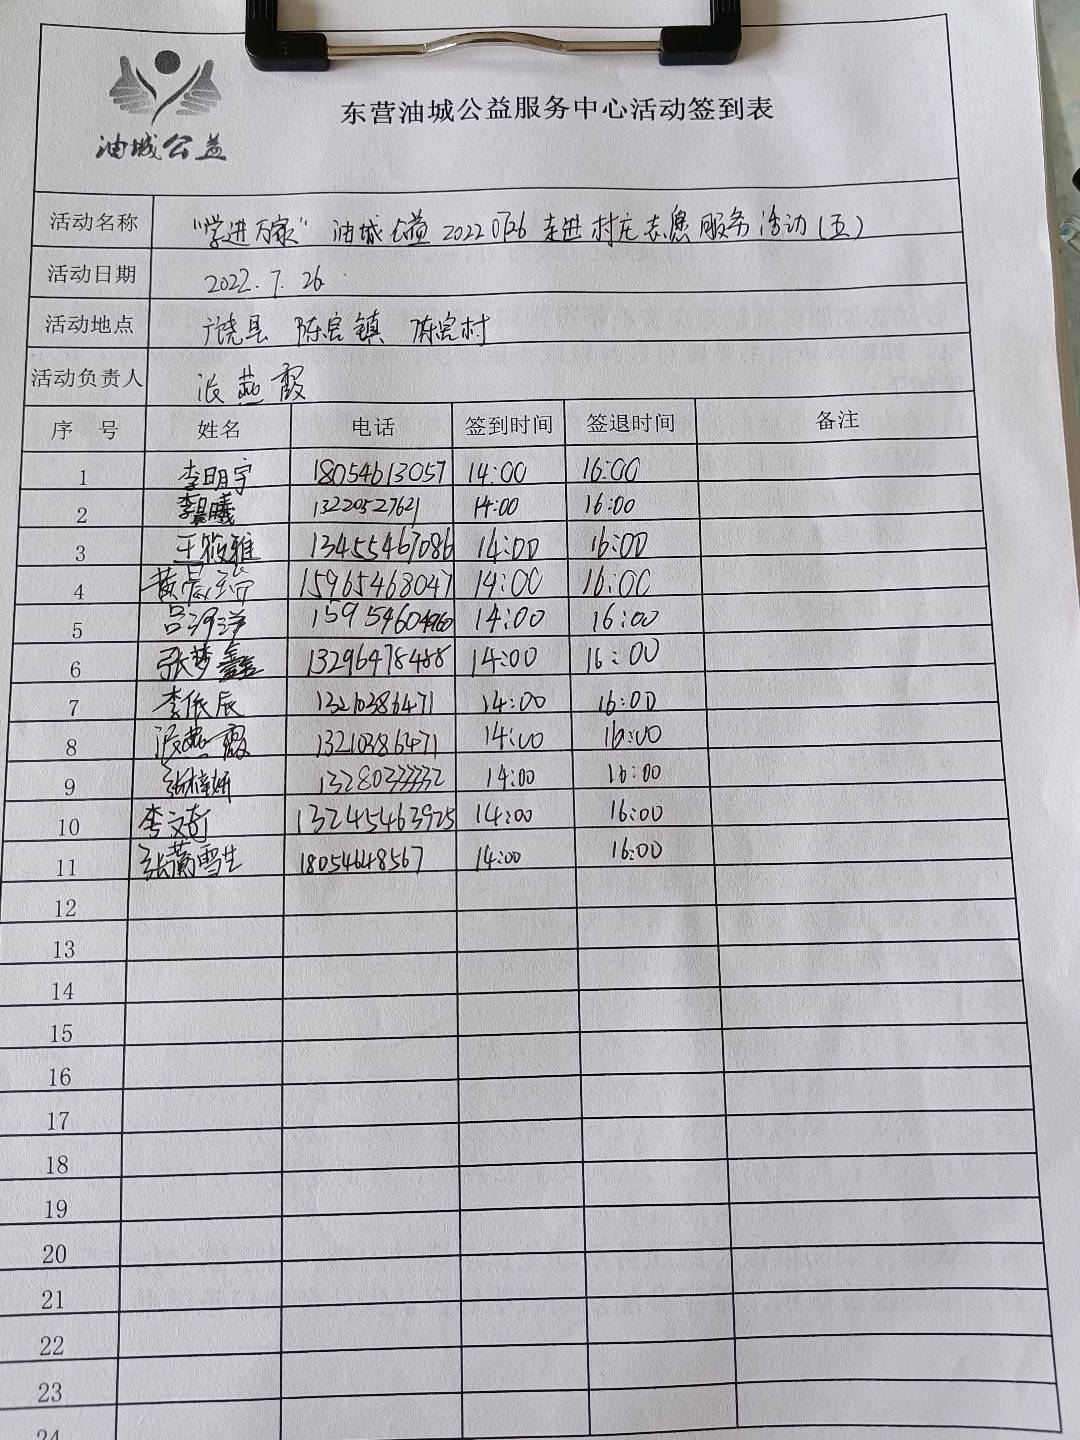 油城公益
东营油城公益服务中心活动签到表
活动名称 "学进万家" 油城公益 20220726 走进村庄志愿服务活动(五)
活动日期 2022.7.26
活动地点 广饶县 陈官镇 陈官村
活动负责人 张燕霞
序号 姓名 电话 签到时间 签退时间 备注
1 李明宇 18054613057 14:00 16:00
2 李晨曦 13220527621 14:00 16:00
3 王筱雅 13455467086 14:00 16:00
4 15965468047 14:00 16:00
5 吕海洋 14:00 16:00
6 张梦鑫 13296478488 14:00 16:00
7 李依辰 13210386471 14:00 16:00
8 张燕霞 13210386471 14:00 16:00
9 张梓妍 13280333332 14:00 16:00
10 李文奇 132454463925 14:00 16:00
11 18054648567 14:00 16:00
12
13
14
15
16
17
18
19
20
21
22
23
24